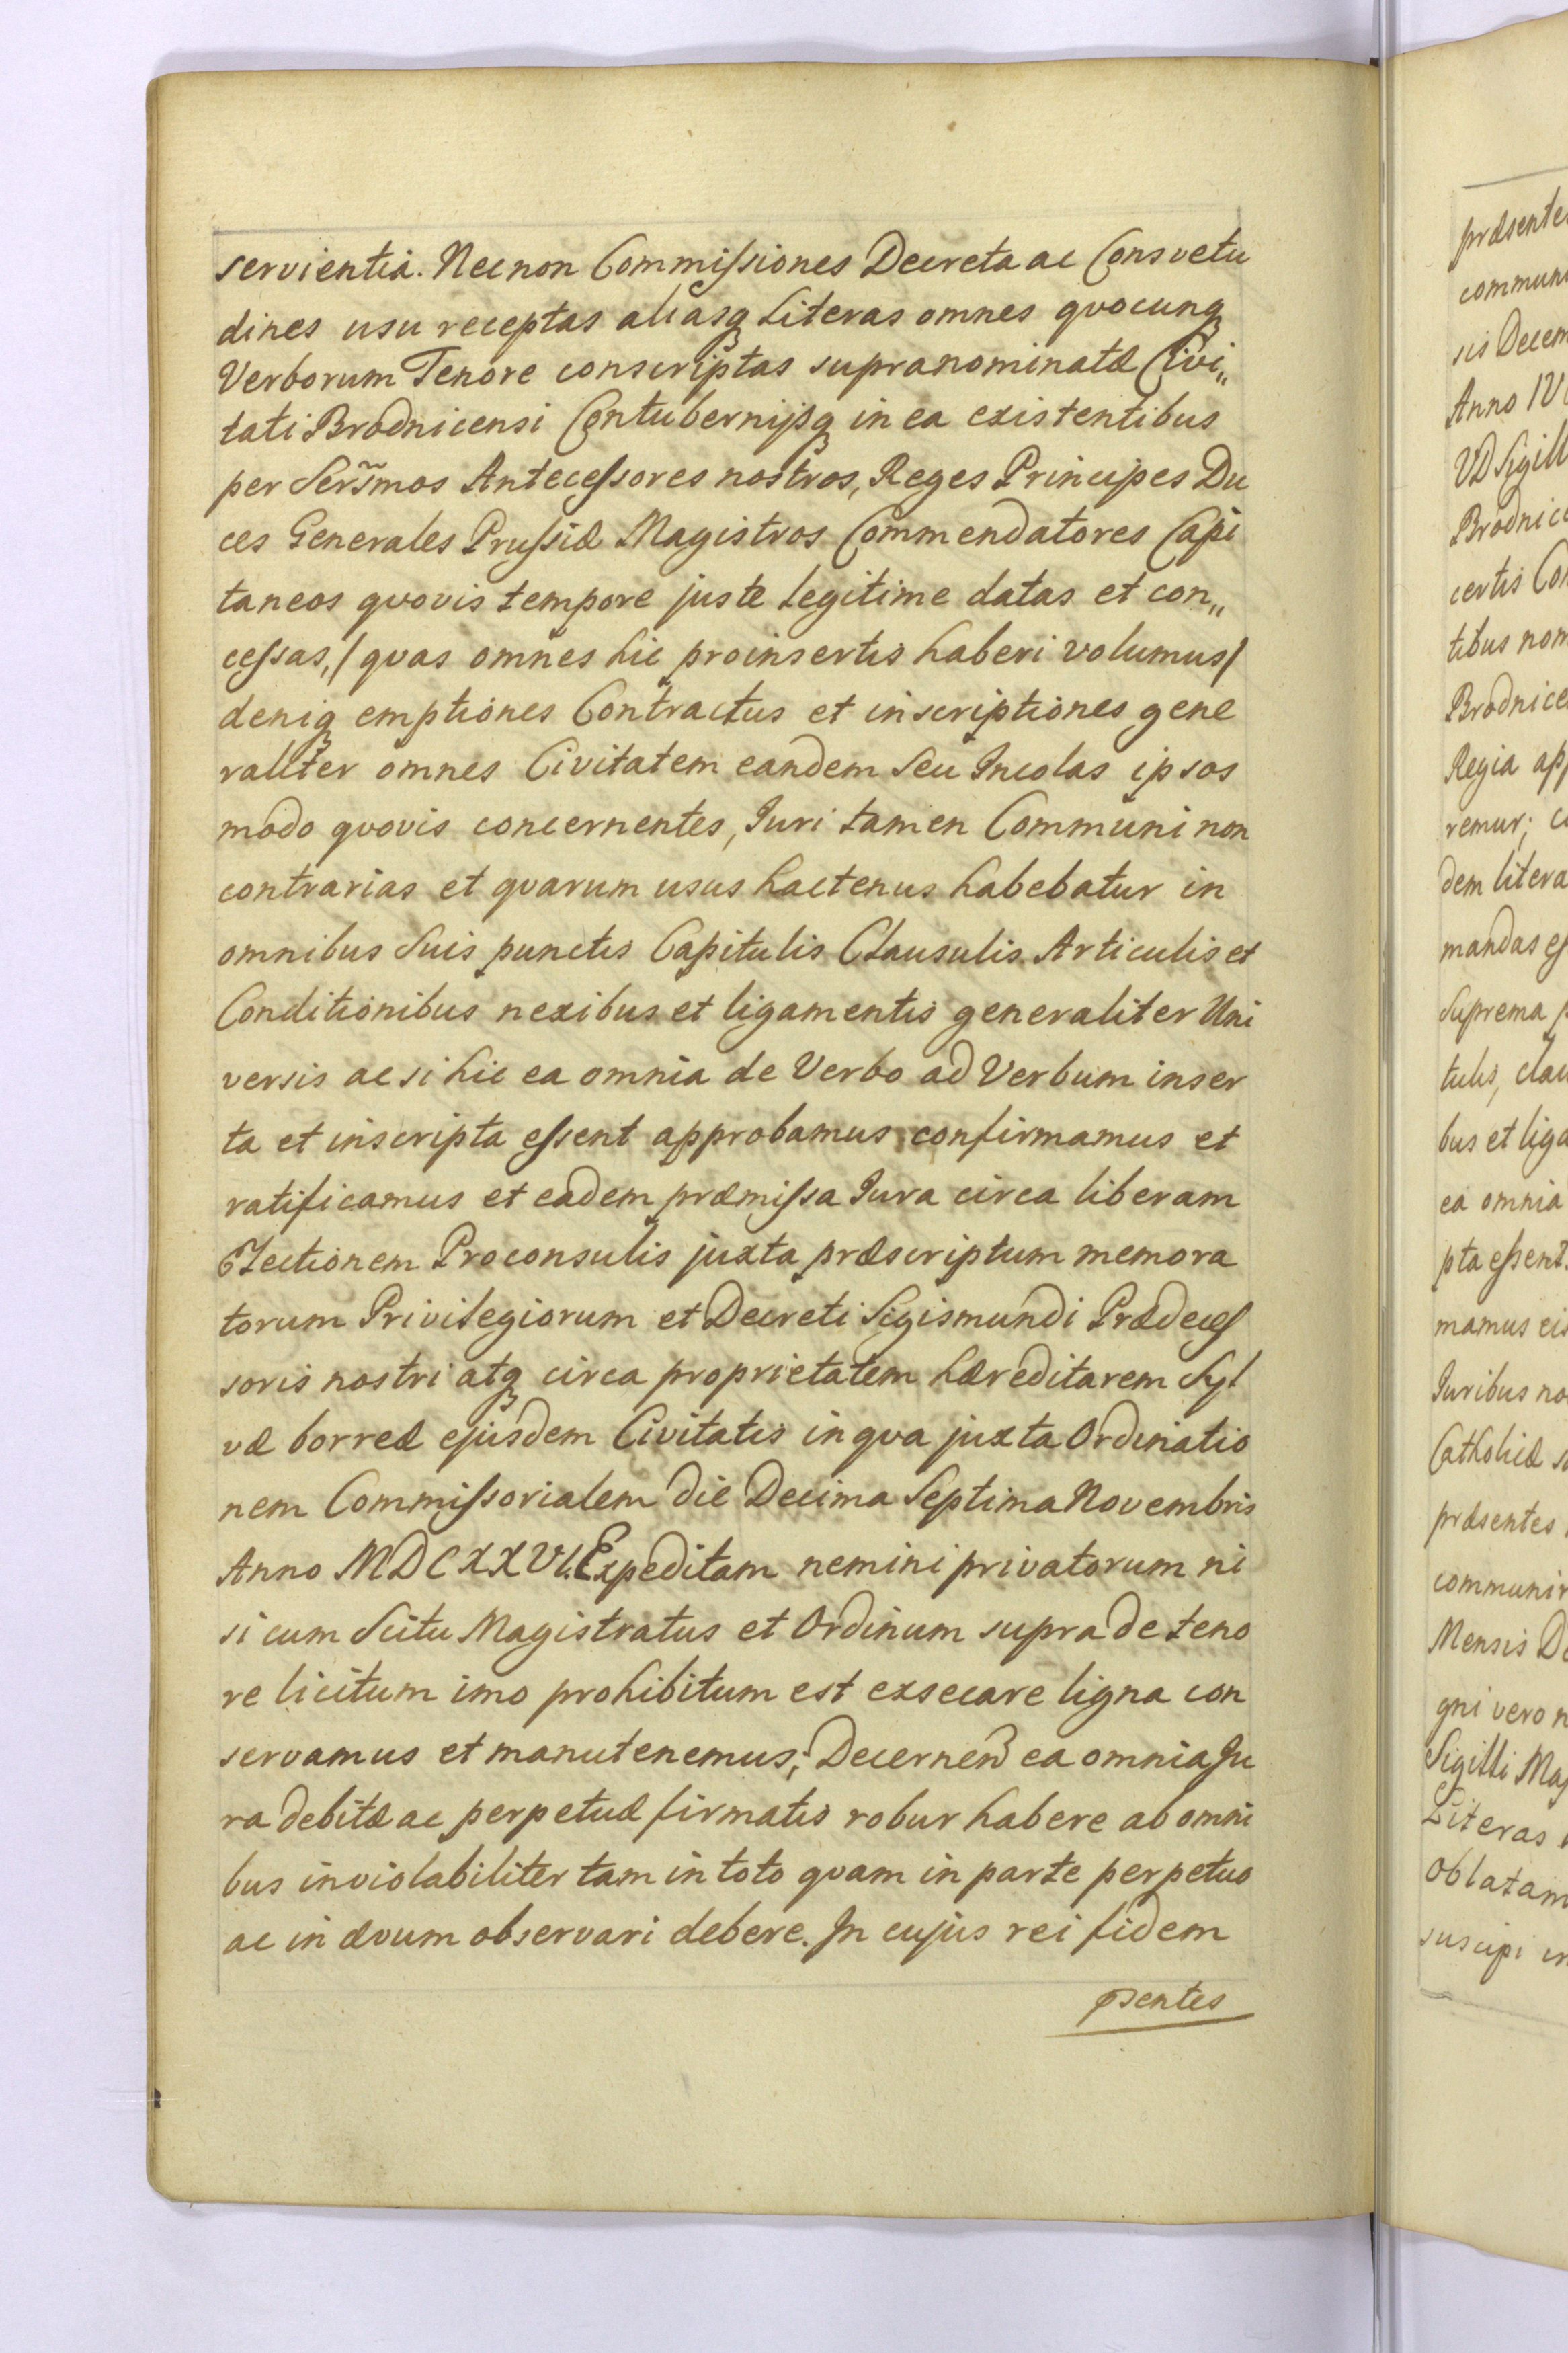 servientia. Necnon Commiſsiones Decreta ac Consvetu
dines usu receptas aliasq Literas omnes qvocunq
Verborum Tenore conscriptas supranominatæ Civi„
tati Brodnicensi Contubernijsq in ea existentibus
per Serm̃os Anteceſsores nostros, Reges Principes Du
ces Generales Pruſsiæ Magistros Commendatores Capi
taneos qvovis tempore juste legitime datas et con„
ceſsas, /qvas omnes hic pro insertis haberi volumus/
deniq emptiones Contractus et inscriptiones gene
raliter omnes Civitatem eandem Seu Incolas ipsos
modo qvovis concernentes, Juri tamen Communi non
contrarias et qvarum usus hactenus habebatur in
omnibus Suis punctis Capitulis Clausulis Articulis et
Conditionibus nexibus et ligamentis generaliter Uni
versis ac si hic ea omnia de Verbo ad Verbum inser
ta et inscripta eſsent approbamus confirmamus et
ratificamus et eadem præmiſsa Jura circa liberam
Electionem Proconsulis juxta præscriptum memora
torum Privilegiorum et Decreti Sigismundi Prædeceſ
soris nostri atq circa proprietatem hæreditarem Syl
væ borreæ ejusdem Civitatis in qva juxta Ordinatio
nem Commiſsorialem die Decima Septima Novembris
Anno MDCXXVI. Expeditam nemini privatorum ni
si cum Scitu Magistratus et Ordinum supra de teno
re licitum imo prohibitum est exsecare ligna con
servamus et manutenemus; Decernen ea omnia Ju
ra debitæ ac perpetuæ firmatis robur habere ab omni
bus inviolabiliter tam in toto qvam in parte perpetuo
ac in ævum observari debere. In cujus rei fidem
psentes
præsente
communi
sis Decem
Anno
VD Sigill
Brodnic
certis Con
tibus nom
Brodnice
Regia app
remur;
dem litera
mandas eſ
Suprema
tulis, clau
bus et liga
ea omnia
pta eſsent
mamus eis
Juribus no
Catholicæ
præsentes
communir
Mensis De
gni vero n
Sigilli Maj
Literas
oblatam
suscipi